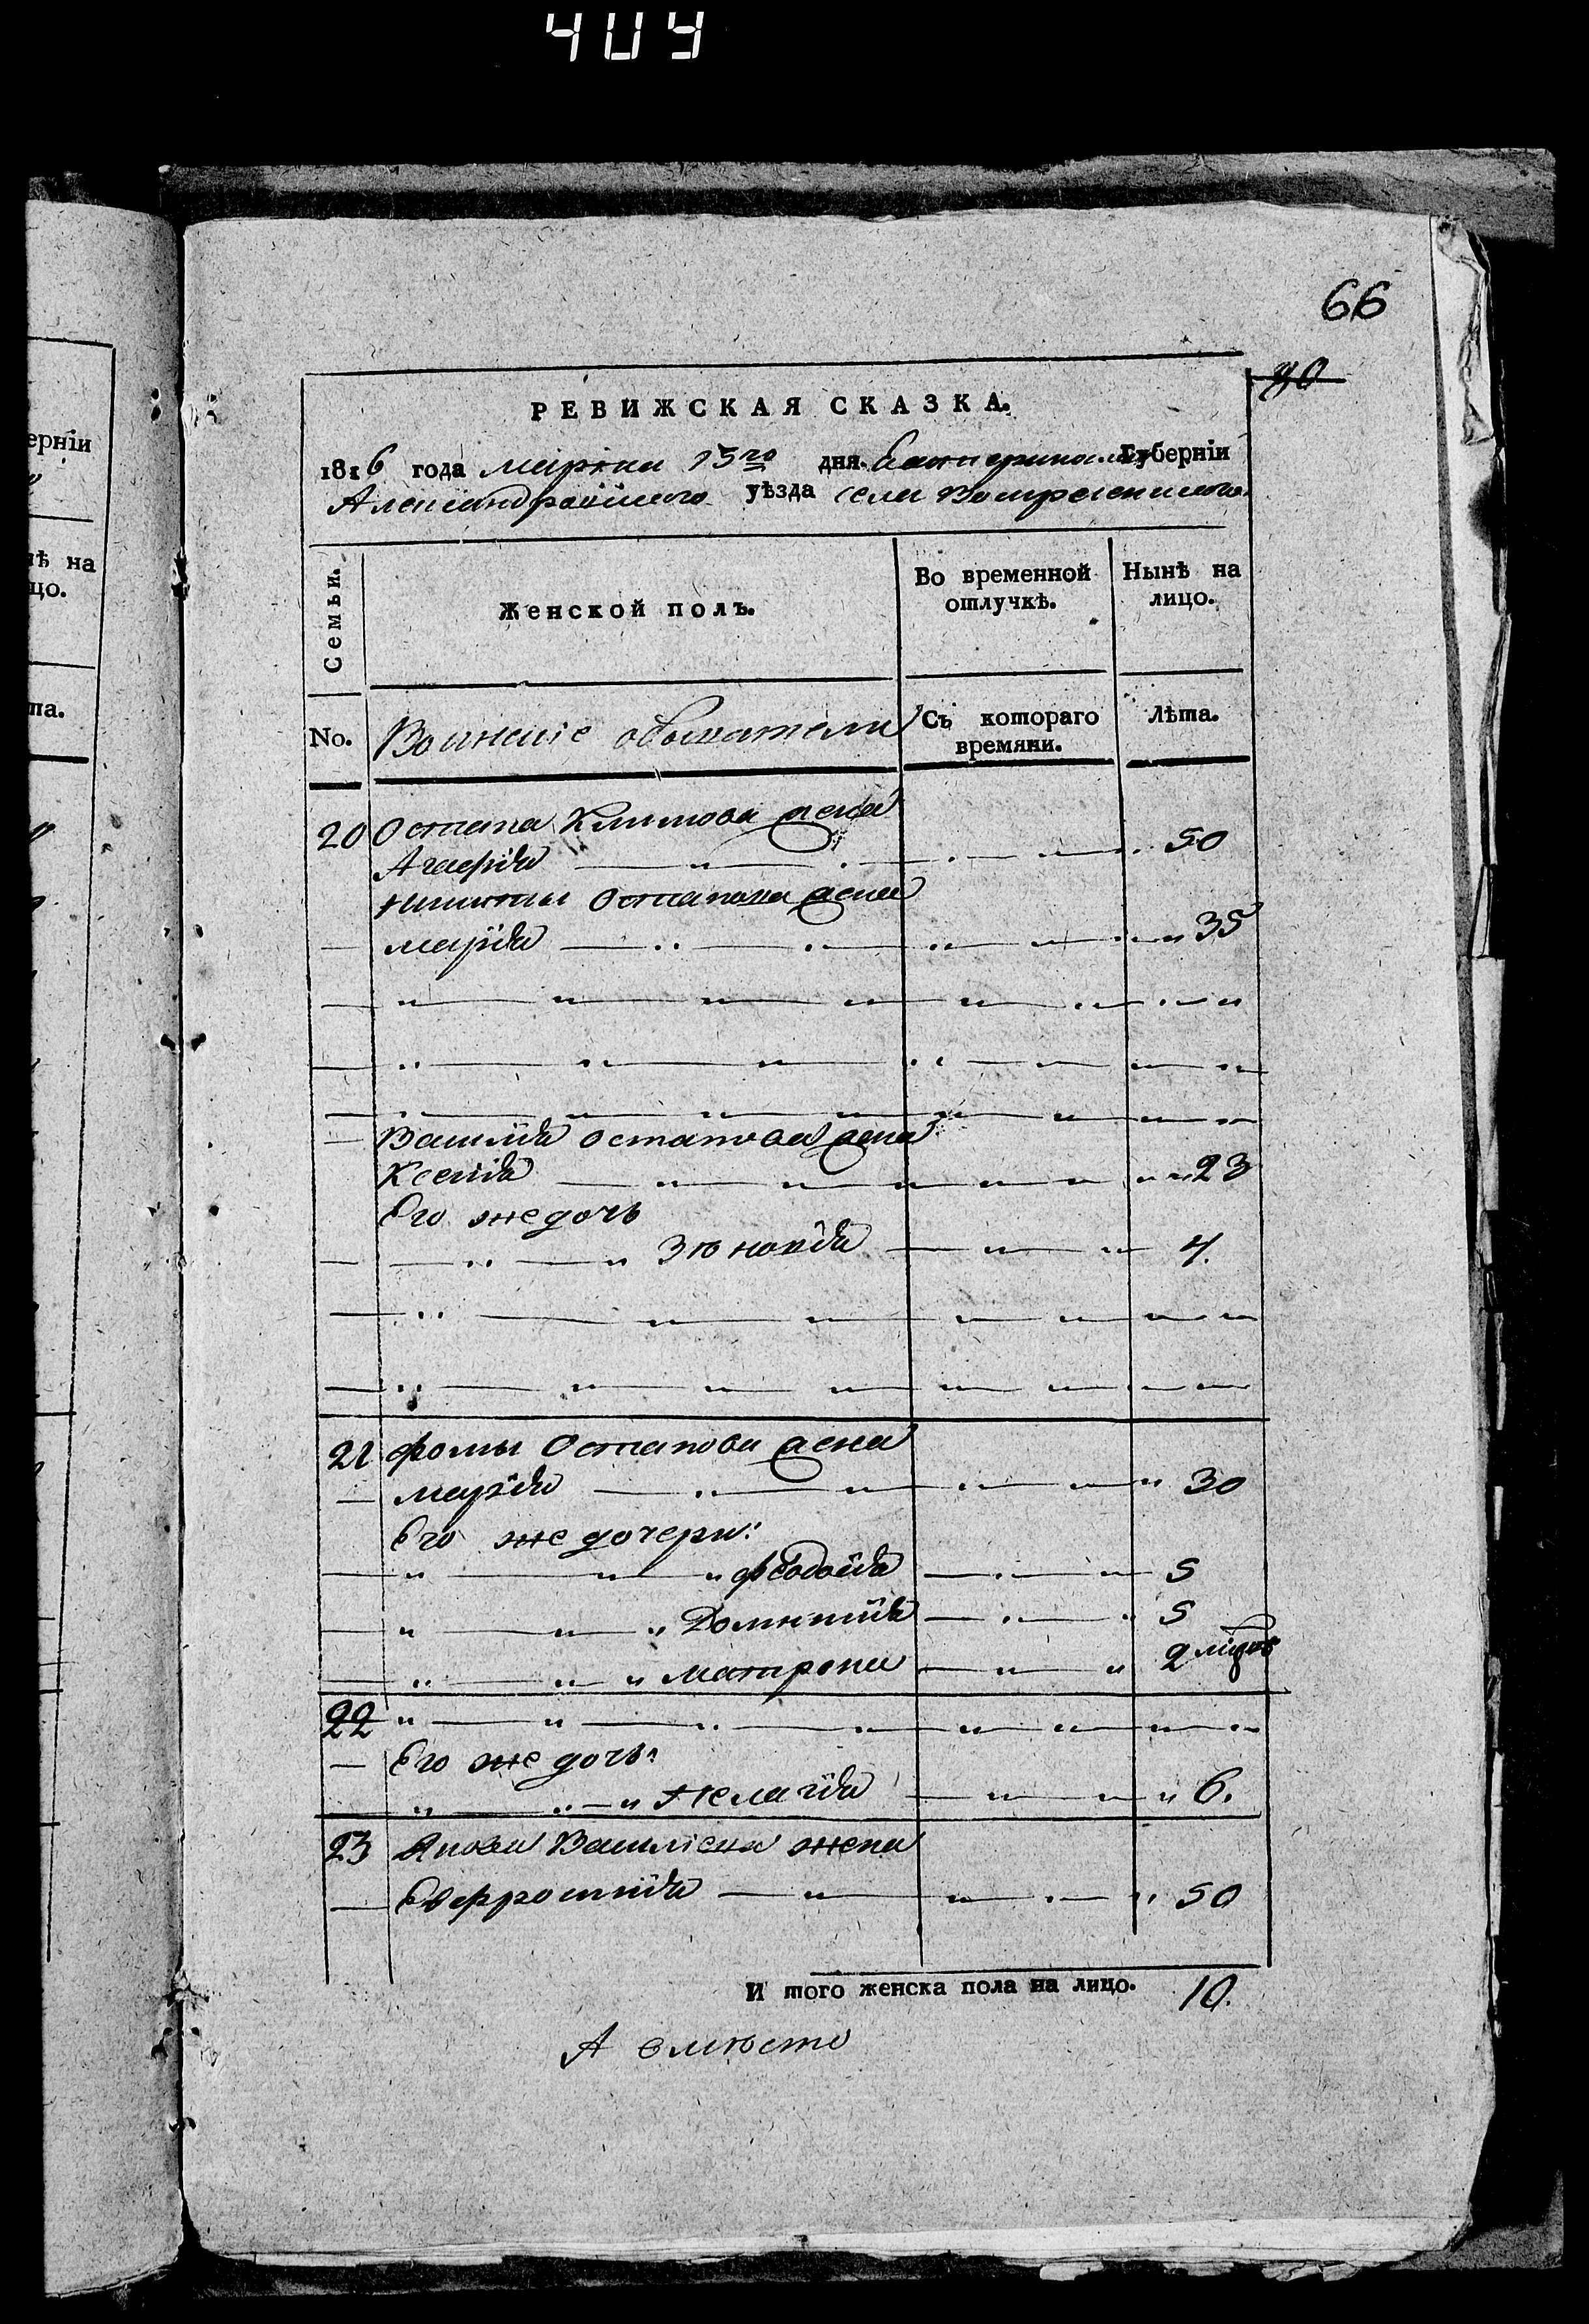 409
66
40
РЕВИЖСКАЯ СКАЗКА.
1816 года марта 15го дня Екатеринославской Губерніи
Александровского уѣзда села Воскресенского
Семьи.
Женской полъ.
Во временной отлучкѣ.
Нынѣ на лицо.
No.
Воинские обыватели
Съ котораго времяни.
Лѣта.
20 Остапа Климова жена
Агафія 50
Никиты Остапова жена
марія 35
Василія остапова жена
Ксенія 23
Его же дочь
Зѣновія 4.
21 фомы Остапова жена
марія 30
Его же дочери:
феодосія 5
Домникія 5
Матрона 2
22
Его же дочь:
Пелагія 6.
23 Якова Василіева жена
Евфросинія 50
И того женска пола на лицо. 10.
А вмѣсто
ерніи
ѣ на
цо.
та.